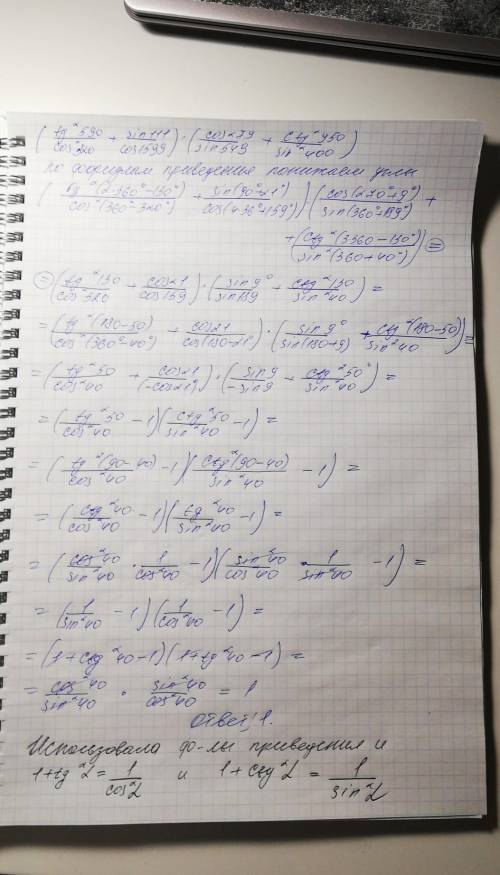 (tg²590/cos²320 + sin111/cos1599)·(cos279/sin549 + ctg²950/sin²400)
по формулам приведения понижаем углы
(tg²(2·360°-130°)/cos²(360°-320°) + sin(90°+21°)/cos(4·36°+159°))·(cos(270°+9°)/sin(360°+189°) +
+ (ctg²(3360-130°)/sin²(360+40°)) =
= (tg²130/cos²320 + cos21/cos159)·(sin9°/sin189 + ctg²130/sin²40) =
= (tg²(180-50)/cos²(360°-40°) + cos21/cos(180-21°))·(sin9°/sin(180+9) + ctg²(180-50)/sin²40) =
= (tg²50/cos²40 + cos21/(-cos21°))·(sin9/-sin9 + ctg²50°/sin²40) =
= (tg²50/cos²40 - 1)(ctg²50/sin²40 - 1) =
= (tg²(90-40)/cos²40 - 1)(ctg²(90-40)/sin²40 - 1) =
= (ctg²40/cos²40 - 1)(tg²40/sin²40 - 1) =
= (cos²40/sin²40 · 1/cos²40 - 1)(sin²40/cos²40 · 1/sin²40 - 1) =
= (1/sin²40 - 1)(1/cos²40 - 1) =
= (1+ctg²40-1)(1+tg²40-1) =
= cos²40/sin²40 · sin²40/cos²40 = 1
Ответ: 1.
Использовала ф-лы приведения и
1+tg²α = 1/cos²α и 1+ctg²α = 1/sin²α